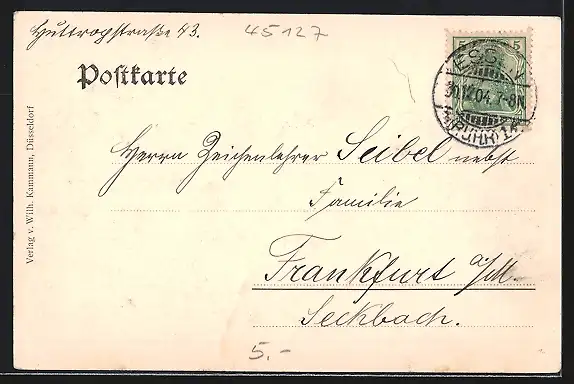 Huttropstraße 43.
45127
Postkarte
5 5
ESSEN
30.12.04. 7-8N.
(RUHR) 1
Herrn Zeichenlehrer Seibel nebst
Familie
Frankfurt a/M
Seckbach.
5.-
Verlag v. Wilh. Kammann, Düsseldorf